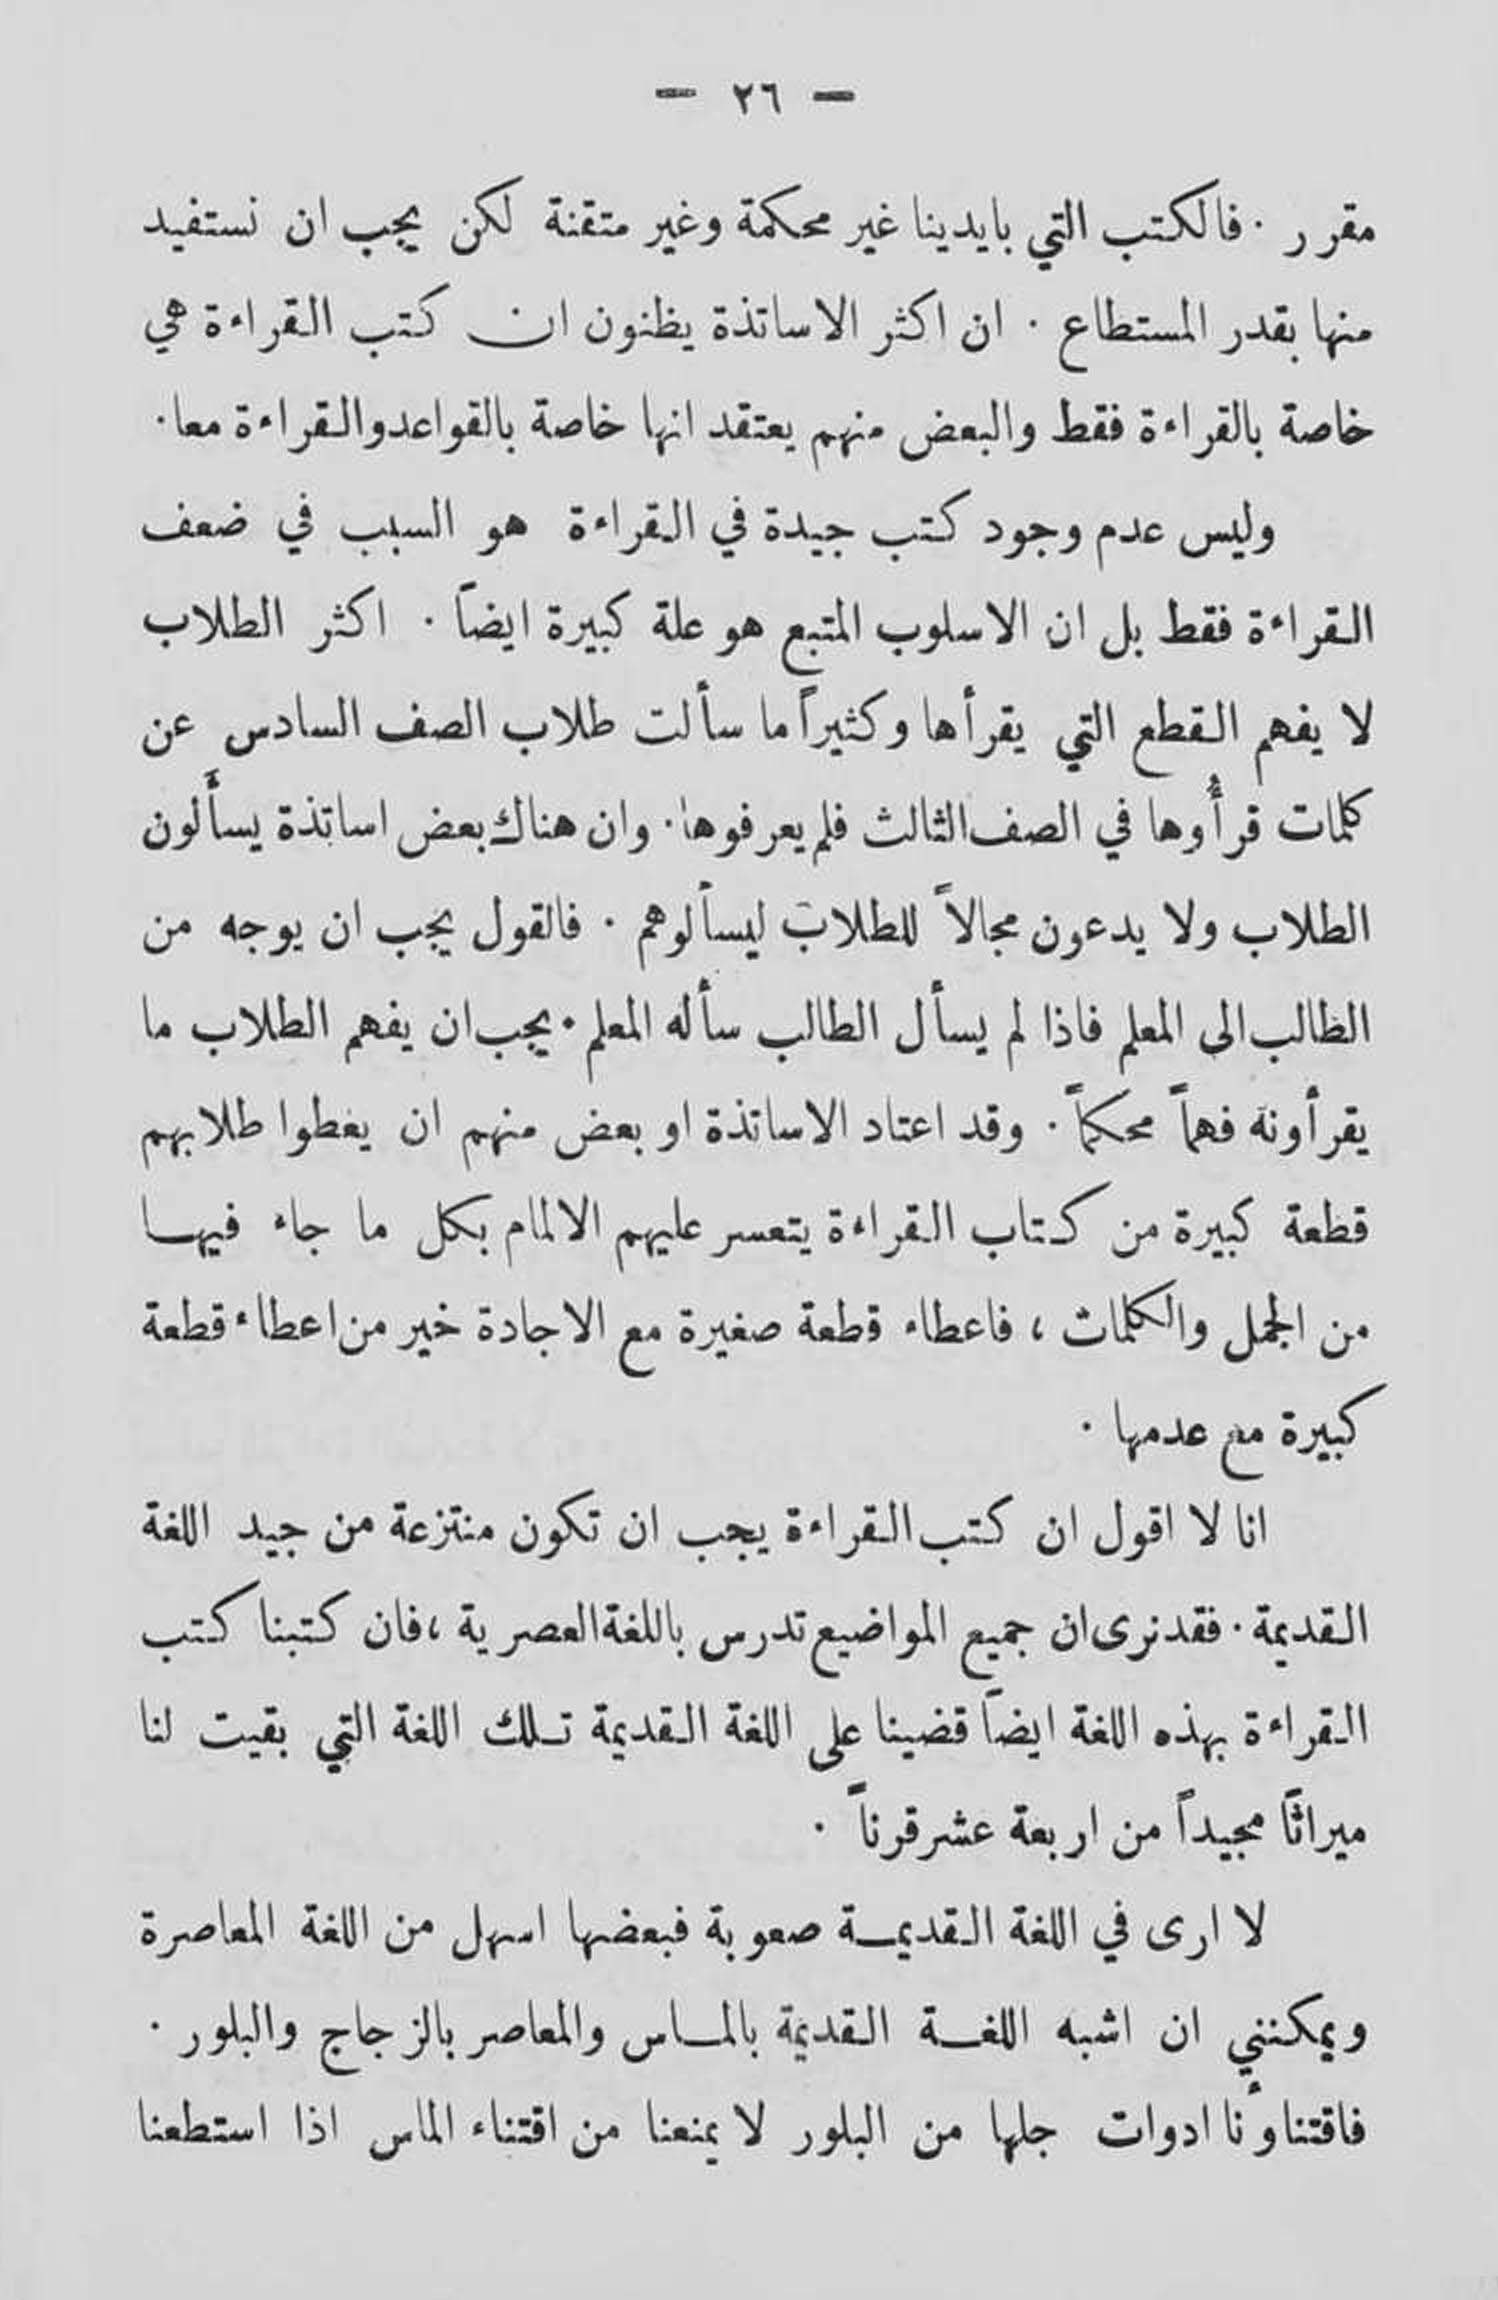 — ٢٦ —
مقرر . فالكتب التي بايدينا غير محكمة وغير متقنة لكن يجب ان نستفيد
منها بقدر المستطاع . ان اكثر الاساتذة يظنون ان كتب القراءة هي
خاصة بالقراءة فقط والبعض منهم يعتقد انها خاصة بالقواعد والقراءة معا .
وليس عدم وجود كتب جيدة في القراءة هو السبب في ضعف
القراءة فقط بل ان الاسلوب المتبع هو علة كبيرة ايضاً . اكثر الطلاب
لا يفهم القطع التي يقرأها وكثيراً ما سألت طلاب الصف السادس عن
كلمات قرأوها في الصف الثالث فلم يعرفوها . وان هناك بعض اساتذة يسألون
الطلاب ولا يدعون مجالاً للطلاب ليسألوهم . فالقول يجب ان يوجه من
الطالب الى المعلم فاذا لم يسأل الطالب سأله المعلم . يجب ان يفهم الطلاب ما
يقرأونه فهماً محكماً . وقد اعتاد الاساتذة او بعض منهم ان يعطوا طلابهم
قطعة كبيرة من كتاب القراءة يتعسر عليهم الالمام بكل ما جاء فيها
من الجمل والكلمات ، فاعطاء قطعة صغيرة مع الاجادة خير من اعطاء قطعة
كبيرة مع عدمها .
انا لا اقول ان كتب القراءة يجب ان تكون منتزعة من جيد اللغة
القديمة . فقد نرى ان جميع المواضيع تدرس باللغة العصرية ، فان كتبنا كتب
القراءة بهذه اللغة ايضاً قضينا على اللغة القديمة تلك اللغة التي بقيت لنا
ميراثاً مجيداً من اربعة عشر قرناً .
لا ارى في اللغة القديمة صعوبة فبعضها اسهل من اللغة المعاصرة
ويمكنني ان اشبه اللغة القديمة بالماس والمعاصر بالزجاج والبلور .
فاقتناؤنا ادوات جلها من البلور لا يمنعنا من اقتناء الماس اذا استطعنا